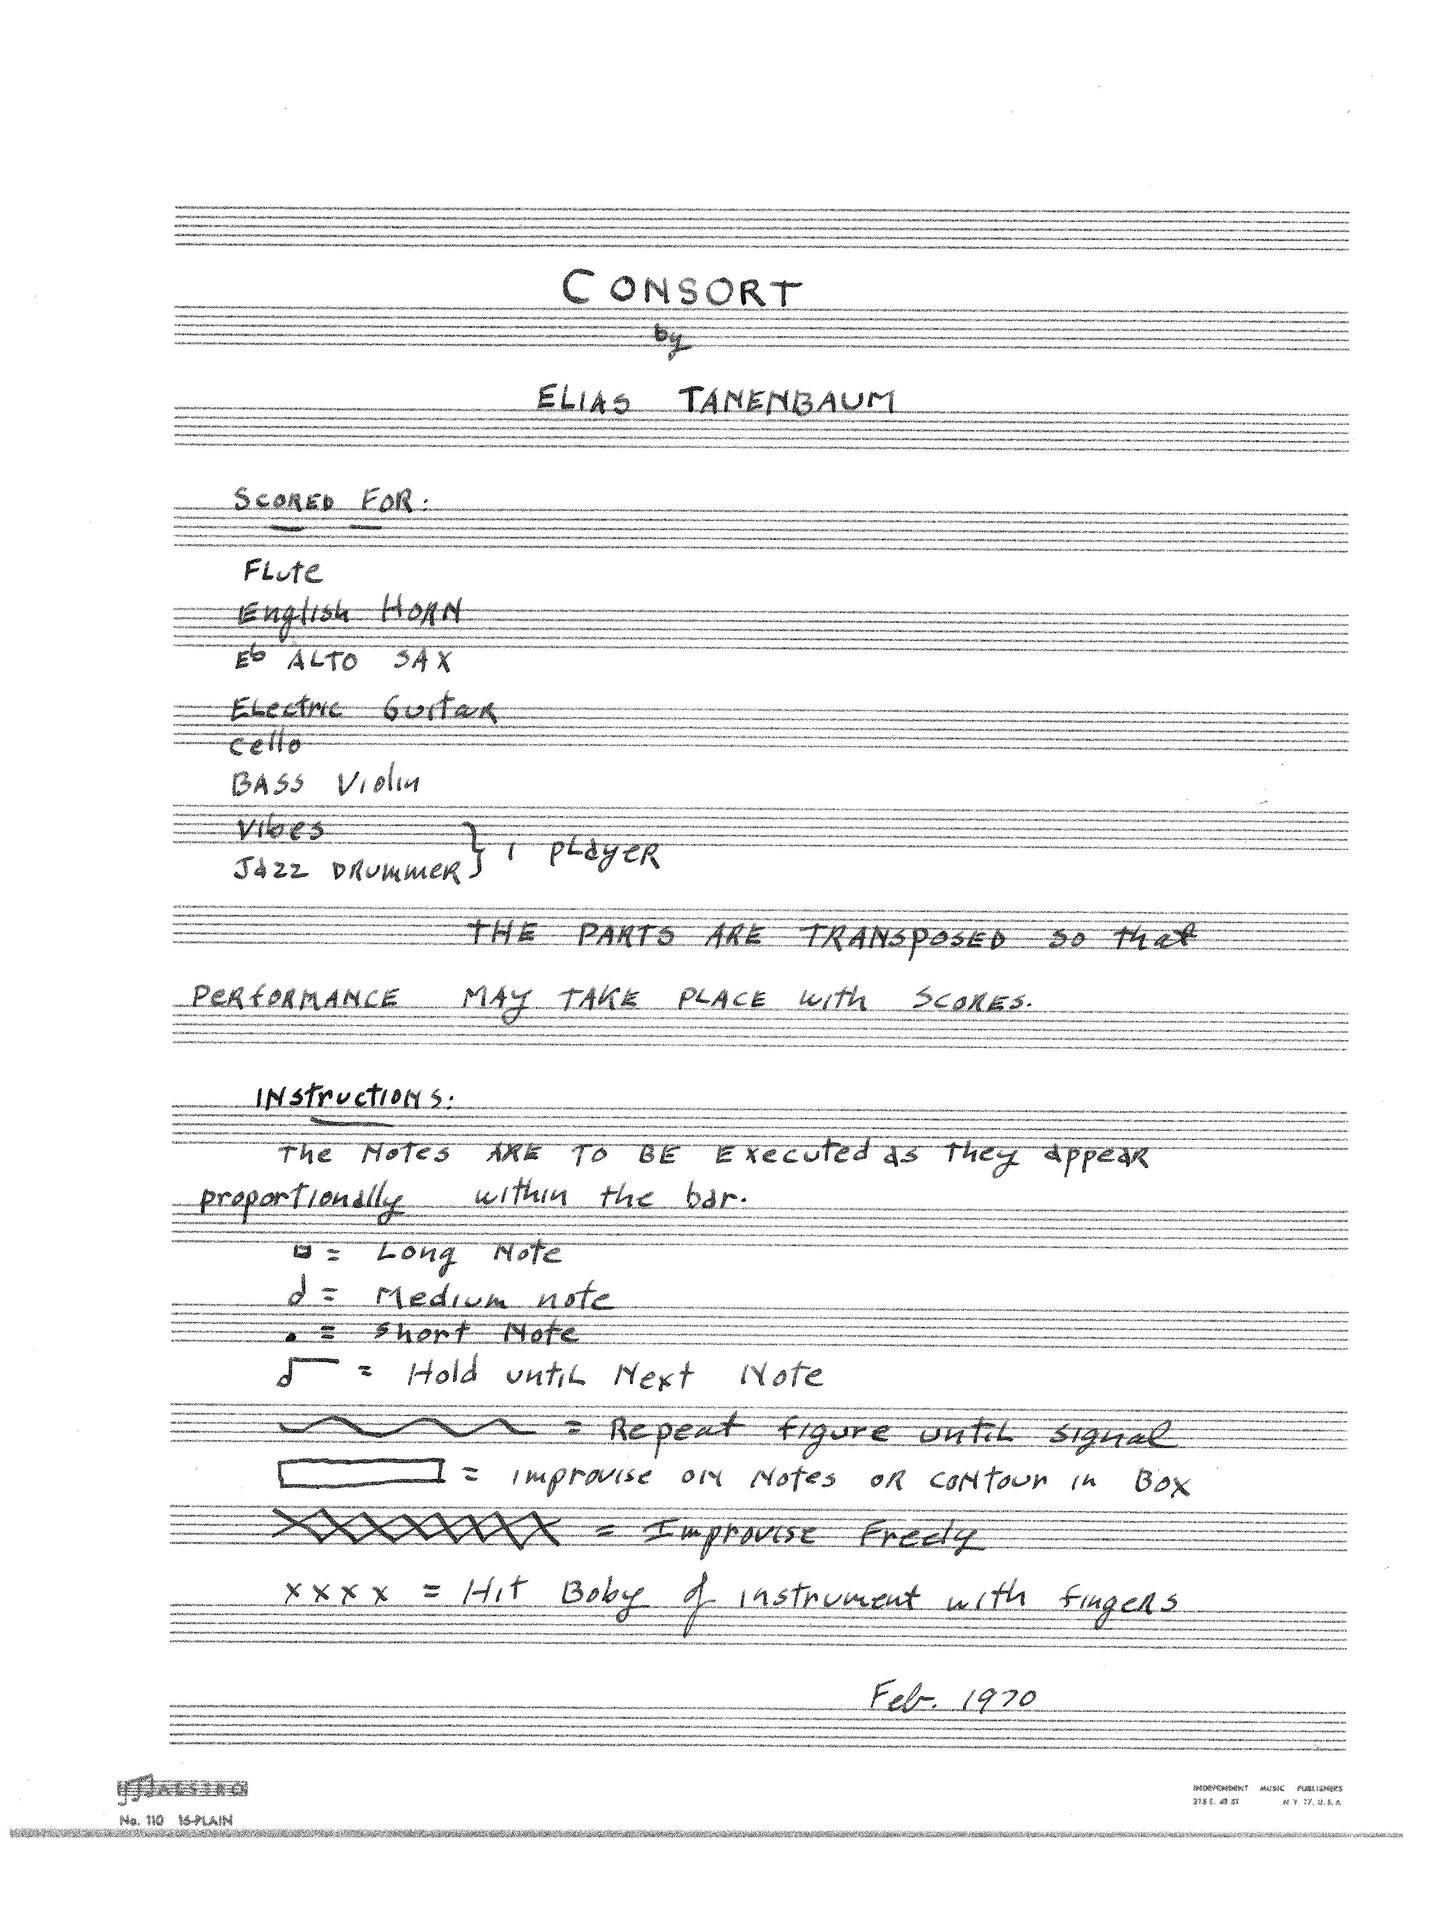 CONSORT
by
ELIAS TANENBAUM
SCORED FOR:
Flute
English HORN
Eb ALTO SAX
Electric Guitar
Cello
BASS Violin
Vibes
Jazz DRUMMER } 1 PLAYER
THE PARTS ARE TRANSPOSED so that
PERFORMANCE MAY TAKE PLACE with SCORES.
INstructIONs:
The Notes ARE TO BE Executed as They appear
proportionally within the bar.
= Long Note
= Medium note
= Short Note
= Hold until Next Note
= Repeat figure until signal
= improvise on Notes OR contour in Box
= Improvise Freely
xxxx = Hit Boby of instrument with fingers
Feb. 1970
MAESTRO
No. 110 16-PLAIN
INDEPENDENT MUSIC PUBLISHERS
N. Y. 17, U. S. A.